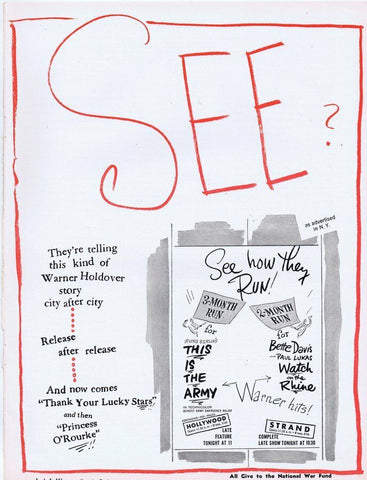 SEE?
as advertised
in N.Y.
They're telling
this kind of
Warner Holdover
story
city after city
Release
after release
And now comes
"Thank Your Lucky Stars"
and then
"Princess
O'Rourke"
See how they
RUN!
3-MONTH
RUN
for
IRVING BERLIN'S
THIS
IS
THE
ARMY
IN TECHNICOLOR
HOLLYWOOD
LATE
FEATURE
TONIGHT AT 11
2-MONTH
RUN
for
Bette Davis
PAUL LUKAS
Watch
on the
Rhine
Warner hits!
STRAND
COMPLETE
LATE SHOW TONIGHT AT 10:30
All Give to the National War Fund